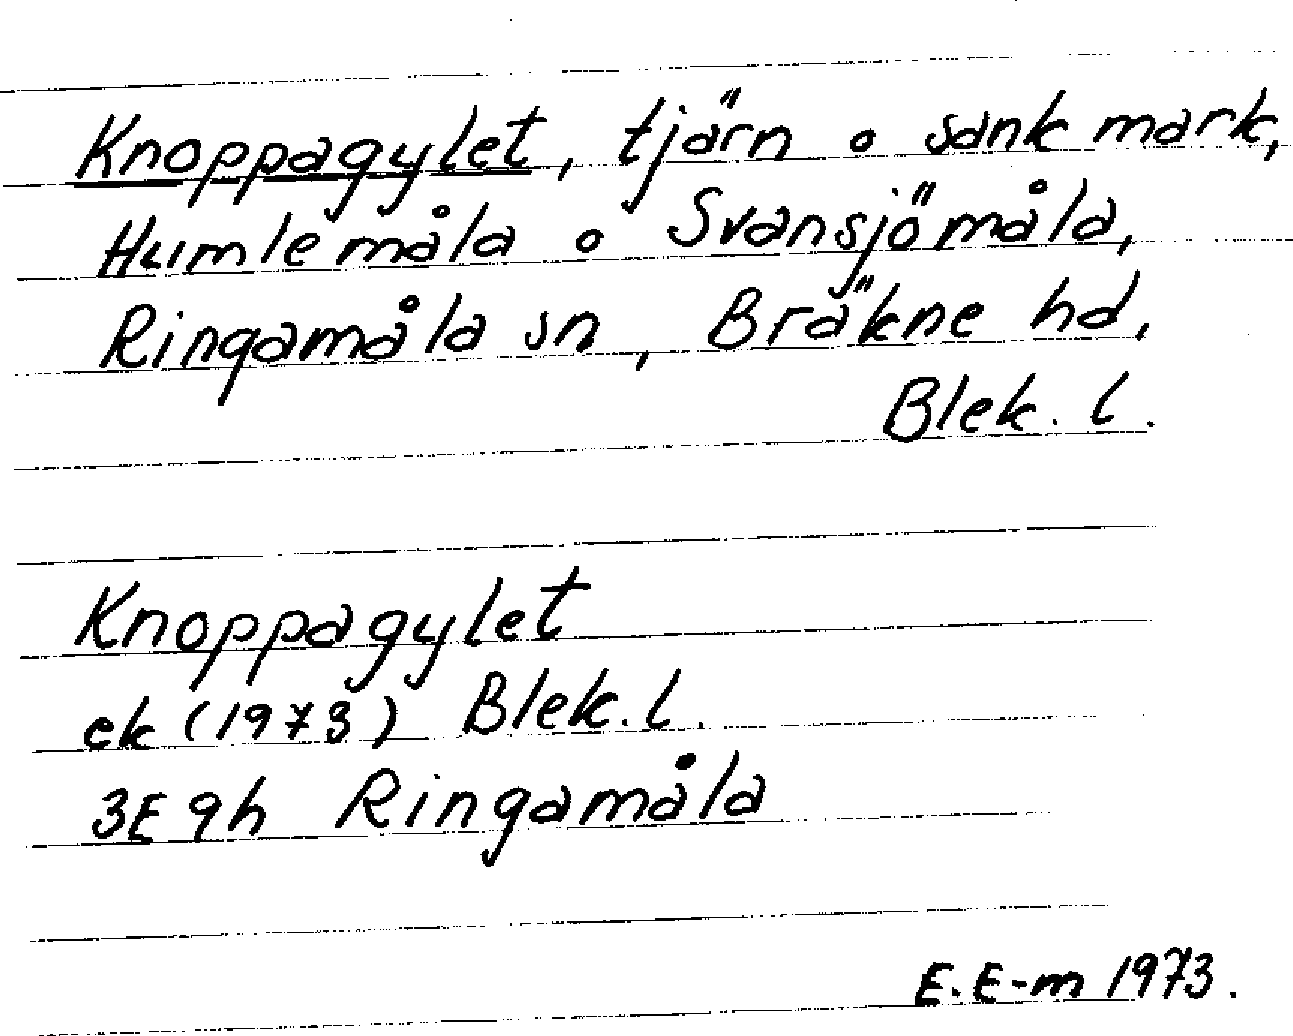 Knoppagylet, tjärn o sank mark,
Humlemåla o Svansjömåla,
Ringamåla sn, Bräkne hd,
Blek. l.
Knoppagylet
ek (1973) Blek. l.
3E 9h Ringamåla
E. E-m 1973.